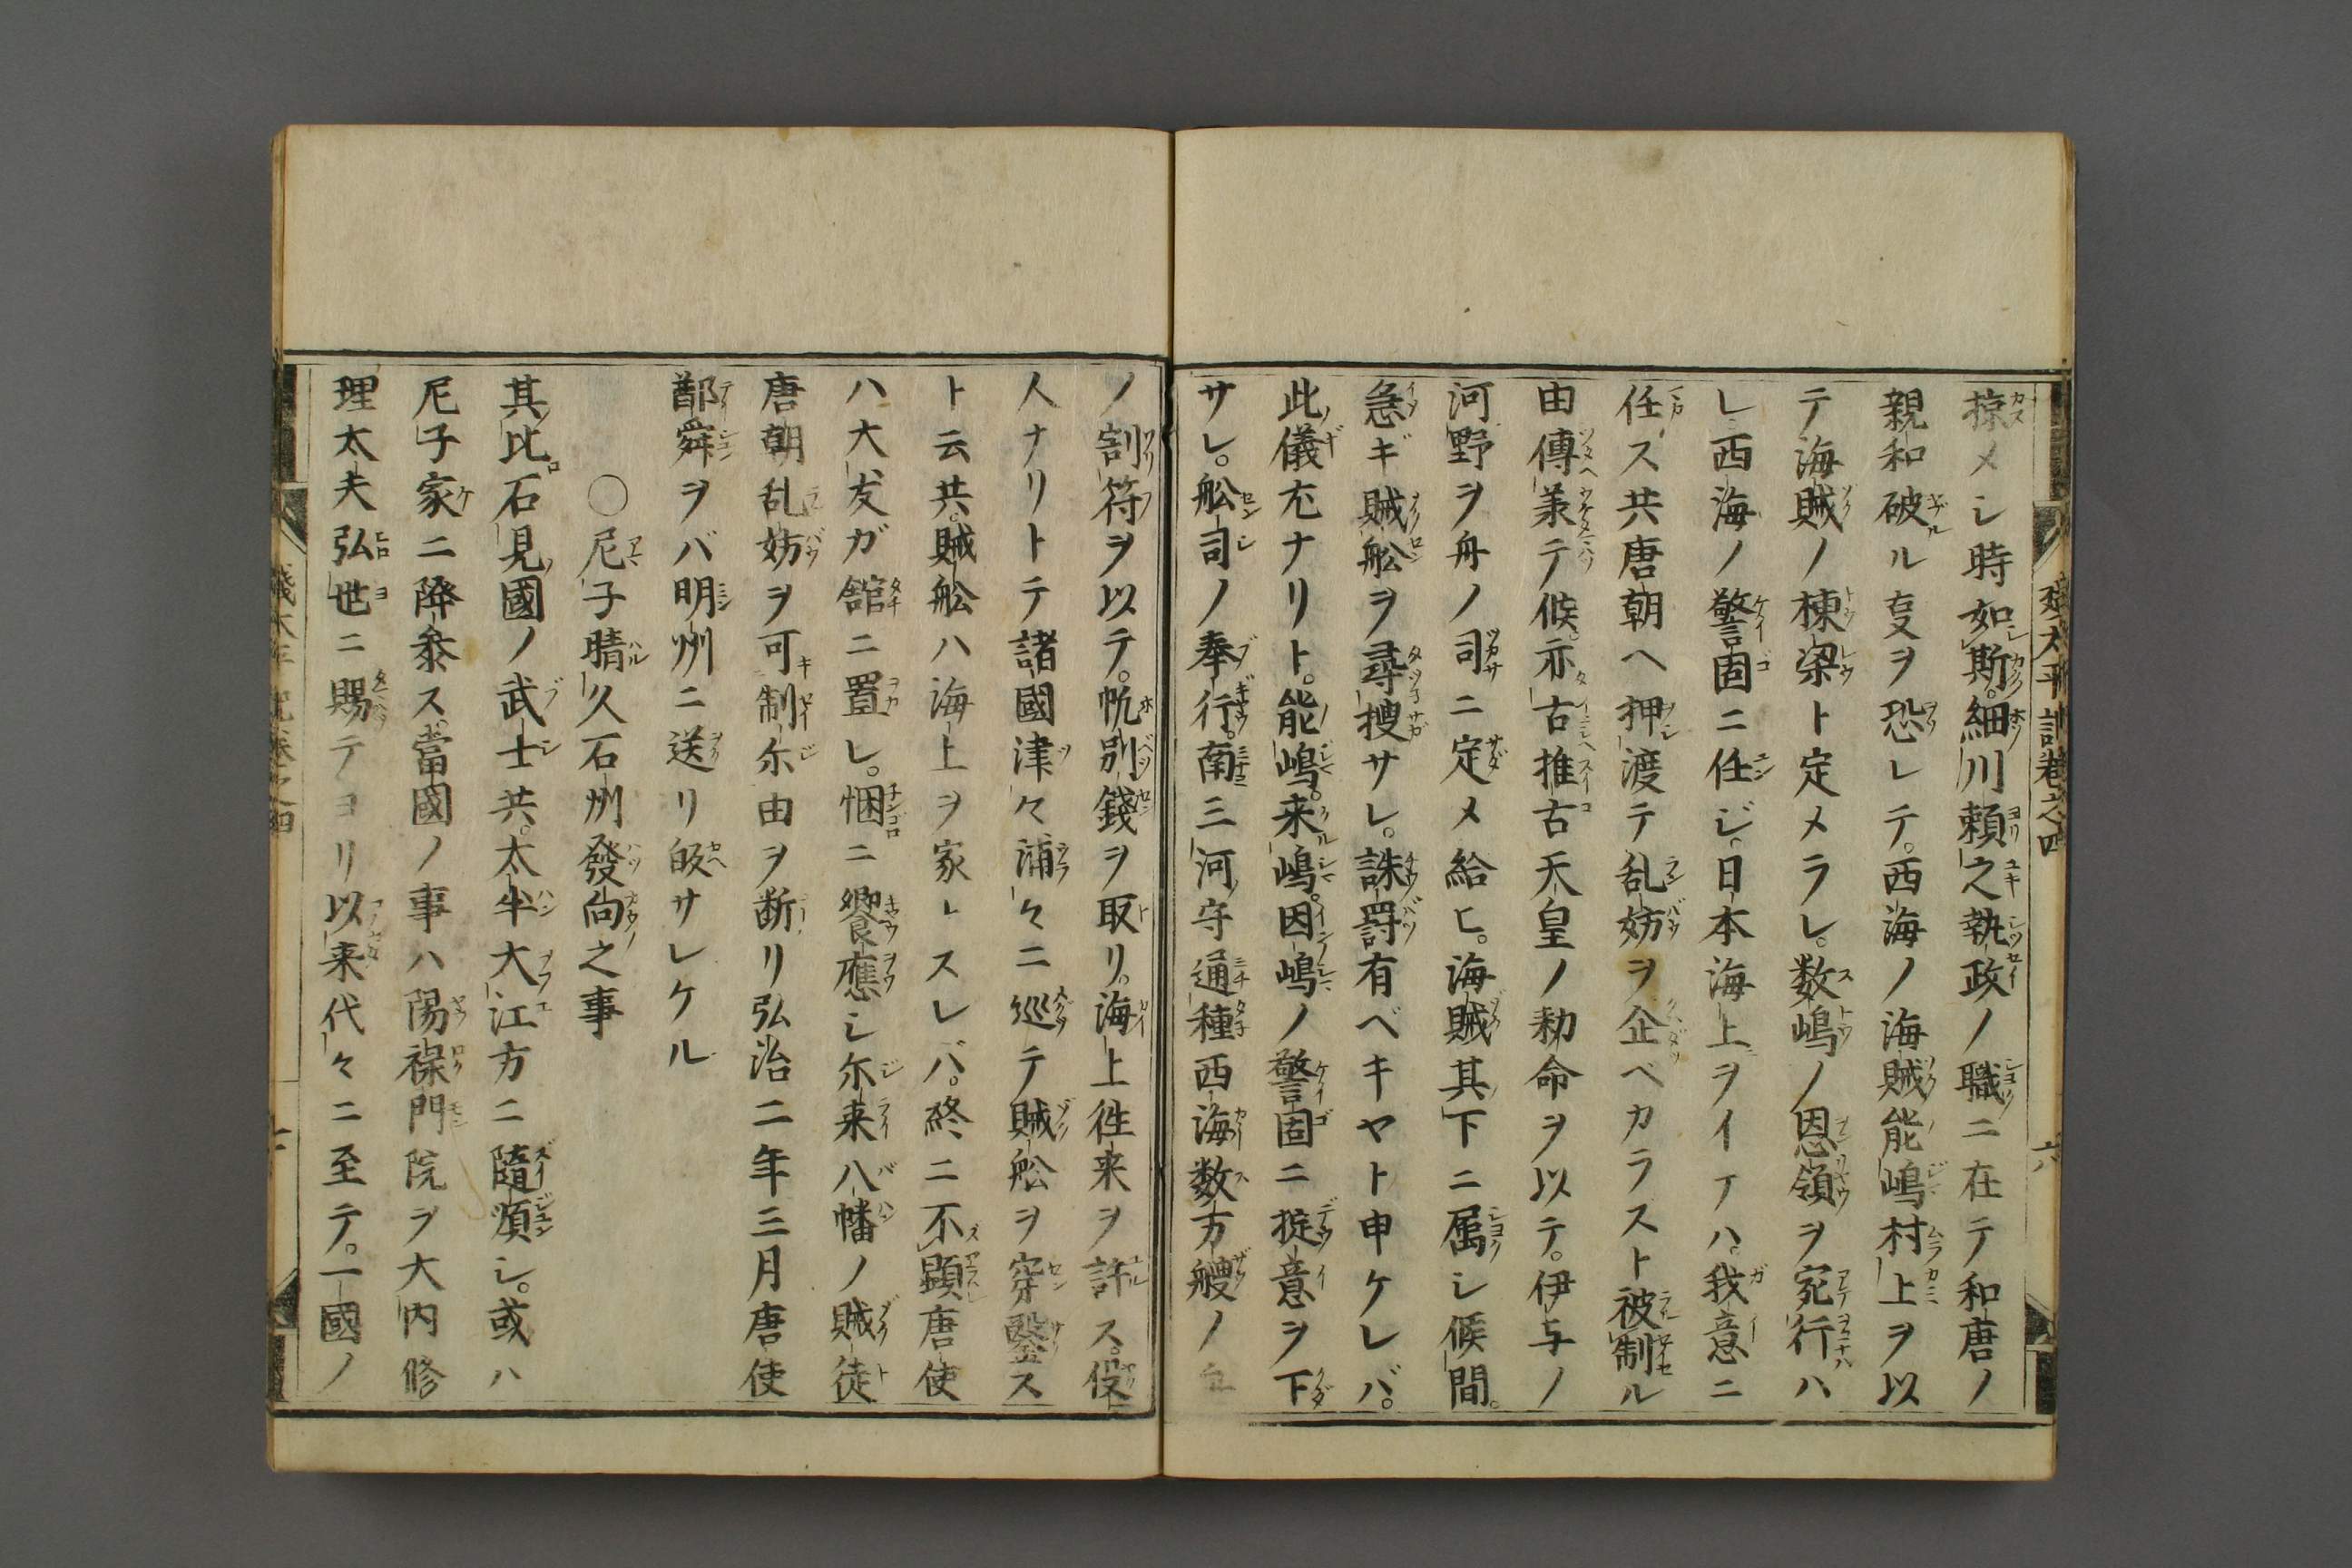 掠メシ時如斯。細川頼之執政ノ職ニ在テ和唐ノ
親和破ル叓ヲ恐レテ。西海ノ海賊能嶋村上ヲ以
テ海賊ノ棟梁ト定メラレ。数嶋ノ恩領ヲ宛行ハ
レ西海ノ警固ニ任ジ。日本海上ヲイテハ。我意ニ
任ス共唐朝ヘ押渡テ乱妨ヲ企ベカラスト被制ル
由傳兼テ候。示古推古天皇ノ勅命ヲ以テ。伊与ノ
河野ヲ舟ノ司ニ定メ給ヒ。海賊其下ニ属シ候間。
急ギ賊舩ヲ尋捜サレ。誅罸有ベキヤト申ケレバ。
此儀尤ナリト。能嶋。来嶋。因嶋ノ警固ニ掟意ヲ下
サレ。舩司ノ奉行。南三河守通種西海数方艘ノ
ノ割符ヲ以テ。帆別錢ヲ取リ。海上徃来ヲ許ス。役
人ナリトテ諸國津々浦々ニ巡テ賊舩ヲ穿鑿ス
ト云共。賊舩ハ海上ヲ家トスレバ。終ニ不顕唐使
ハ大友ガ舘ニ置レ。悃ニ饗應シ尓来八幡ノ賊徒
唐朝乱妨ヲ可制尓由ヲ断リ弘治二年三月唐使
鄑舜ヲバ明州ニ送リ皈サレケル
〇尼子晴久石州發向之事
其比石見國ノ武士共。太半大江方ニ隨順シ。或ハ
尼子家ニ降叅ス。當國ノ事ハ陽禄門院ヲ大内修
理太夫弘世ニ賜テヨリ以来代々ニ至テ。一國ノ